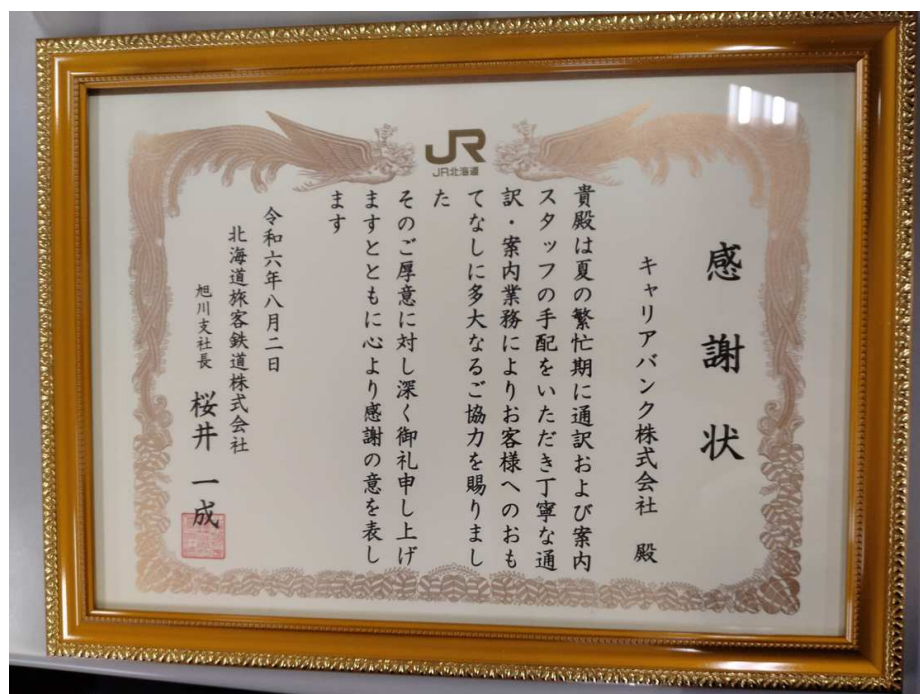 JR
JR北海道
感謝状
キャリアバンク株式会社 殿
貴殿は夏の繁忙期に通訳および案内
スタッフの手配をいただき丁寧な通
訳・案内業務によりお客様へのおも
てなしに多大なるご協力を賜りまし
た
そのご厚意に対し深く御礼申し上げ
ますとともに心より感謝の意を表し
ます
令和六年八月二日
北海道旅客鉄道株式会社
旭川支社長 桜井 一成